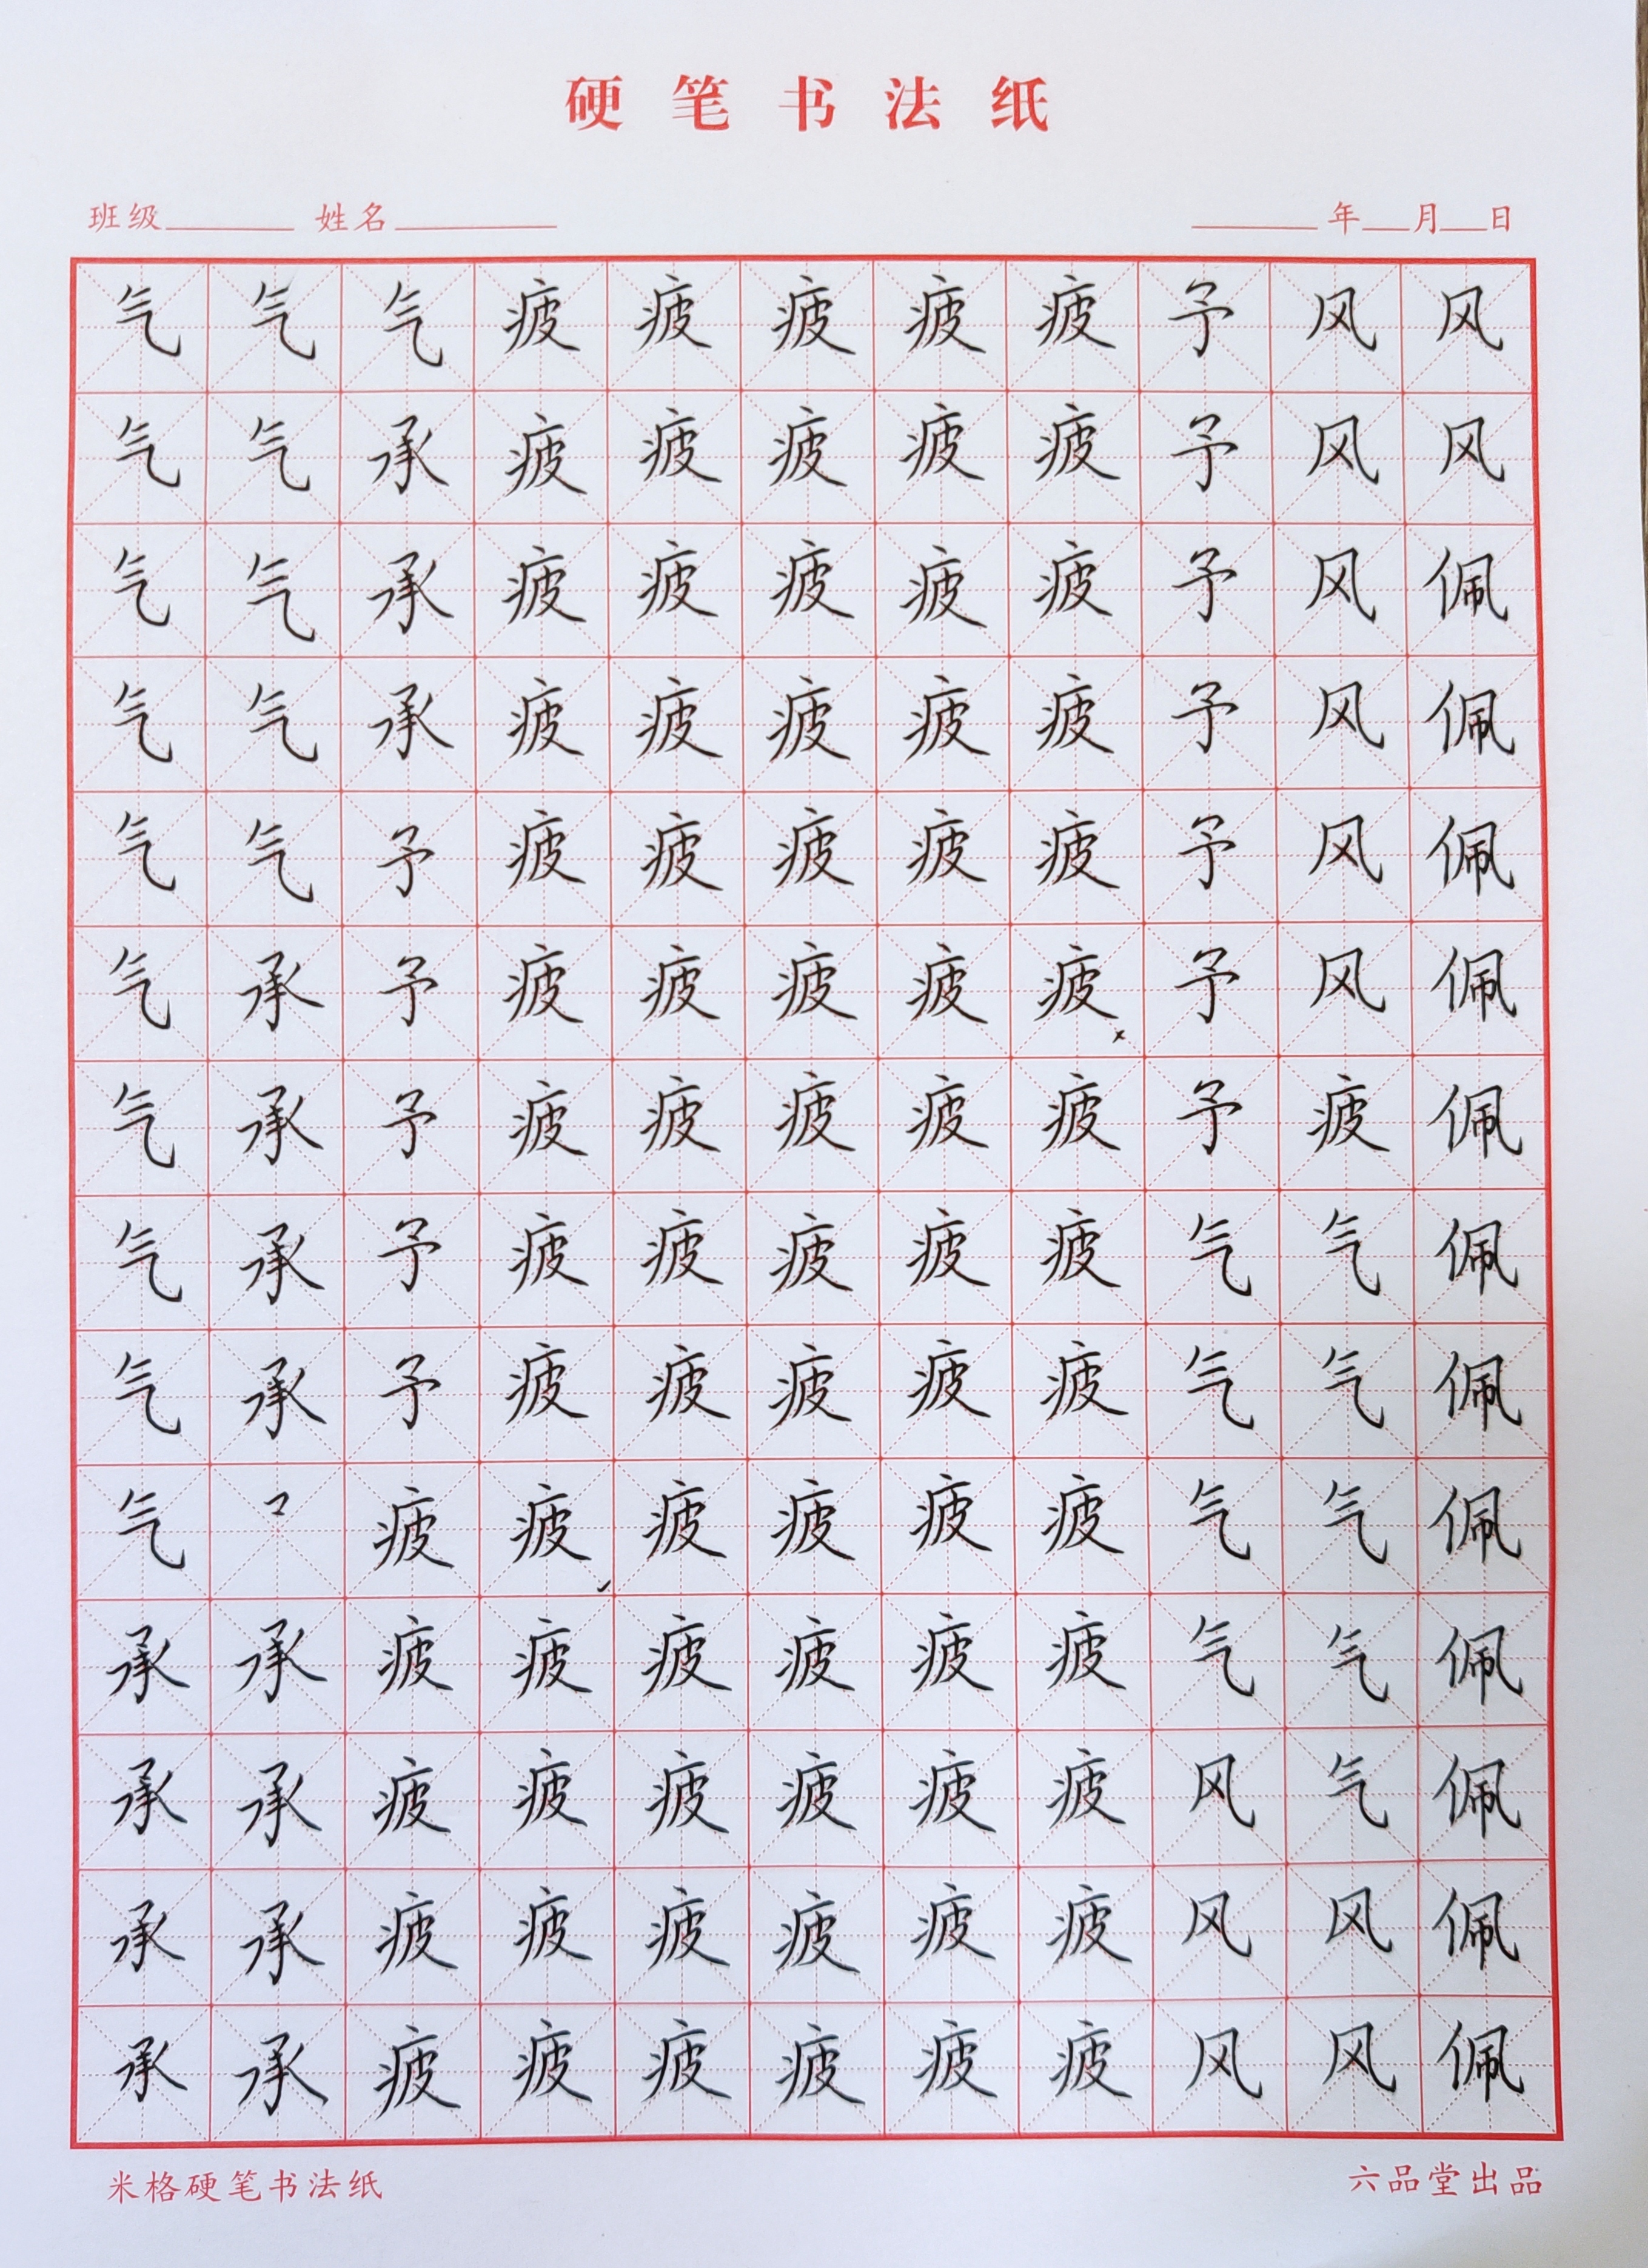 硬笔书法纸
班级 姓名 年 月 日
气气气疲疲疲疲疲予风风
气气承疲疲疲疲疲予风风
气气承疲疲疲疲疲予风佩
气气承疲疲疲疲疲予风佩
气气予疲疲疲疲疲予风佩
气承予疲疲疲疲疲予风佩
气承予疲疲疲疲疲予疲佩
气承予疲疲疲疲疲气气佩
气承予疲疲疲疲疲气气佩
气疲疲疲疲疲疲气气佩
承承疲疲疲疲疲疲气气佩
承承疲疲疲疲疲疲风气佩
承承疲疲疲疲疲疲风风佩
承承疲疲疲疲疲疲风风佩
米格硬笔书法纸 六品堂出品